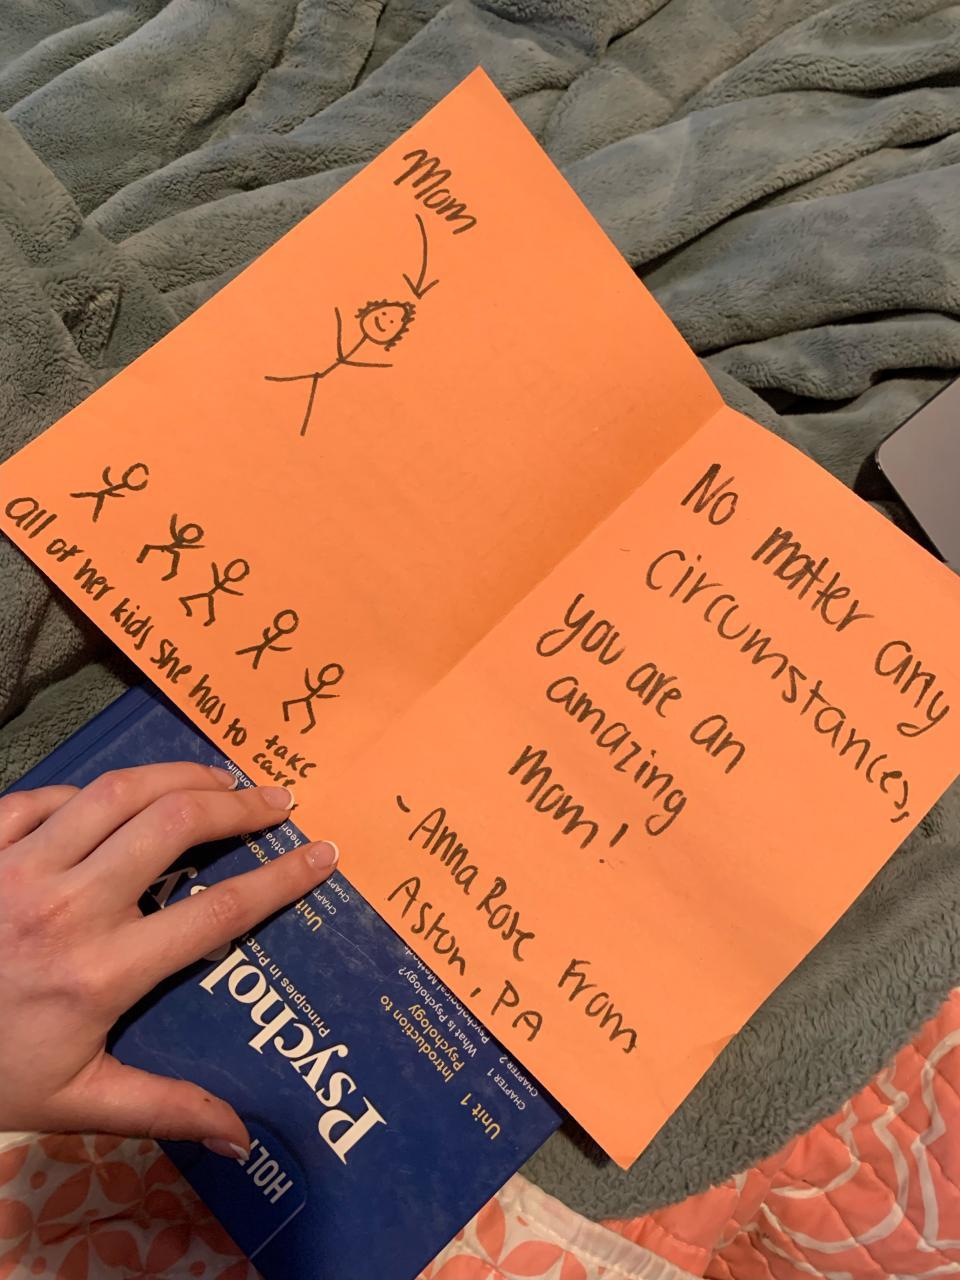 Mom
All of her kids she has to take
care
No matter any
circumstances,
you are an
amazing
mom!
- Anna Rose from
Aston, PA
Psychol
Principles in Prac
HOLT
Unit 1
Introduction to
Psychology
CHAPTER 1
What is Psychology?
CHAPTER 2
Psychological Methods
Unit